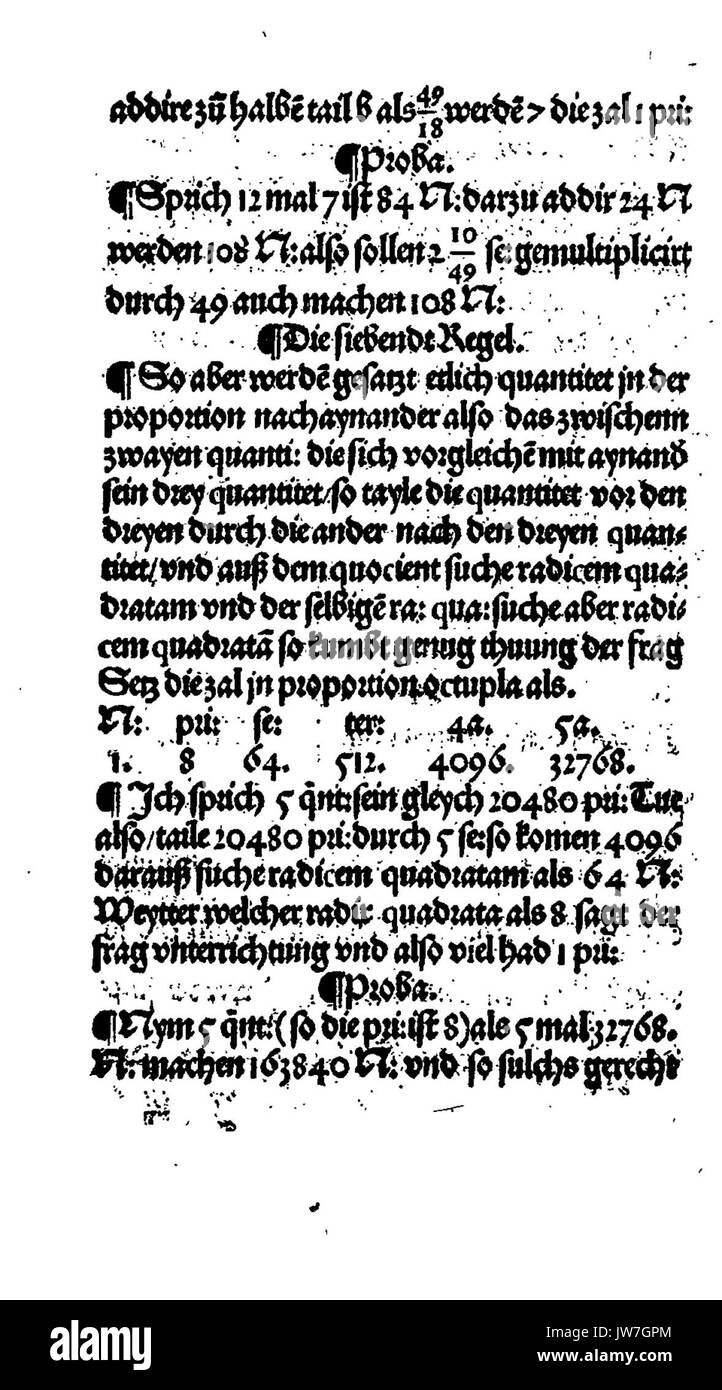 addire zů halbē tail b als 49/18 werdē 7 die zal 1 pri:
¶Proba.
¶Sprich 12 mal 7 ist 84 N: darzu addir 24 N
werden 108 N: also sollen 2 10/49 se: gemultiplicirt
durch 49 auch machen 108 N:
¶Die siebendt Regel.
¶ So aber werdē gesatzt etlich quantitet jn der
proportion nach aynander also das zwischenn
zwayen quanti: die sich vorgleichē mit aynand
sein drey quantitet/so tayle die quantitet vor den
dreyen durch die ander nach den dreyen quan⸗
titet/vnd auß dem quocient suche radicem qua⸗
dratam vnd der selbigē ra: qua: suche aber radi⸗
cem quadratā so kumbt genug thuung der frag
Setz die zal jn proportion octupla als.
N: pri: se: ter: 4a. 5a.
1. 8 64. 512. 4096. 32768.
¶ Jch sprich 5 q̄nt: sein gleych 20480 pri: Tue
also/taile 20480 pri: durch 5 se: so komen 4096
darauß suche radicem quadratam als 64 N:
Weytter welcher radix quadrata als 8 sagt der
frag vnterrichtung vnd also viel had 1 pri:
¶Proba.
¶Nym 5 q̄nt: (so die pri: ist 8) als 5 mal 32768.
N: machen 163840 N: vnd so sulchs gerecht
alamy
Image ID: JW7GPM
www.alamy.com